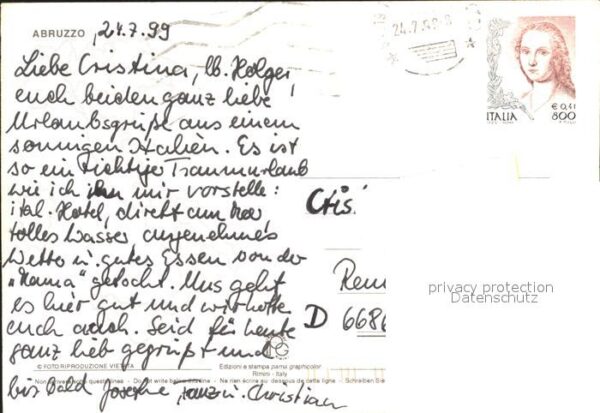 ABRUZZO
, 24.7.99
Liebe Cristina, lb. Holger,
euch beiden ganz liebe
Urlaubsgrüße aus einem
sonnigen Italien. Es ist
so ein richtiger Traumurlaub
wie ich ihn mir vorstelle:
ital. Hotel, direkt am
tolles Wasser, angenehmes
Wetter u. gutes Essen von der
„Mama" gekocht. Uns geht
es hier gut und wir hoffe
euch auch. Seid für heute
ganz lieb gegrüßt und
bis bald
u. Christian
24.7.
ITALIA
€ 0,41
800
Cris
D 6686
privacy protection
Datenschutz
© FOTO RIPRODUZIONE VIETATA
Edizioni e stampa
Rimini - Italy
Non writing below
Ne rien écrire au dessous de cette ligne - Schreiben Sie